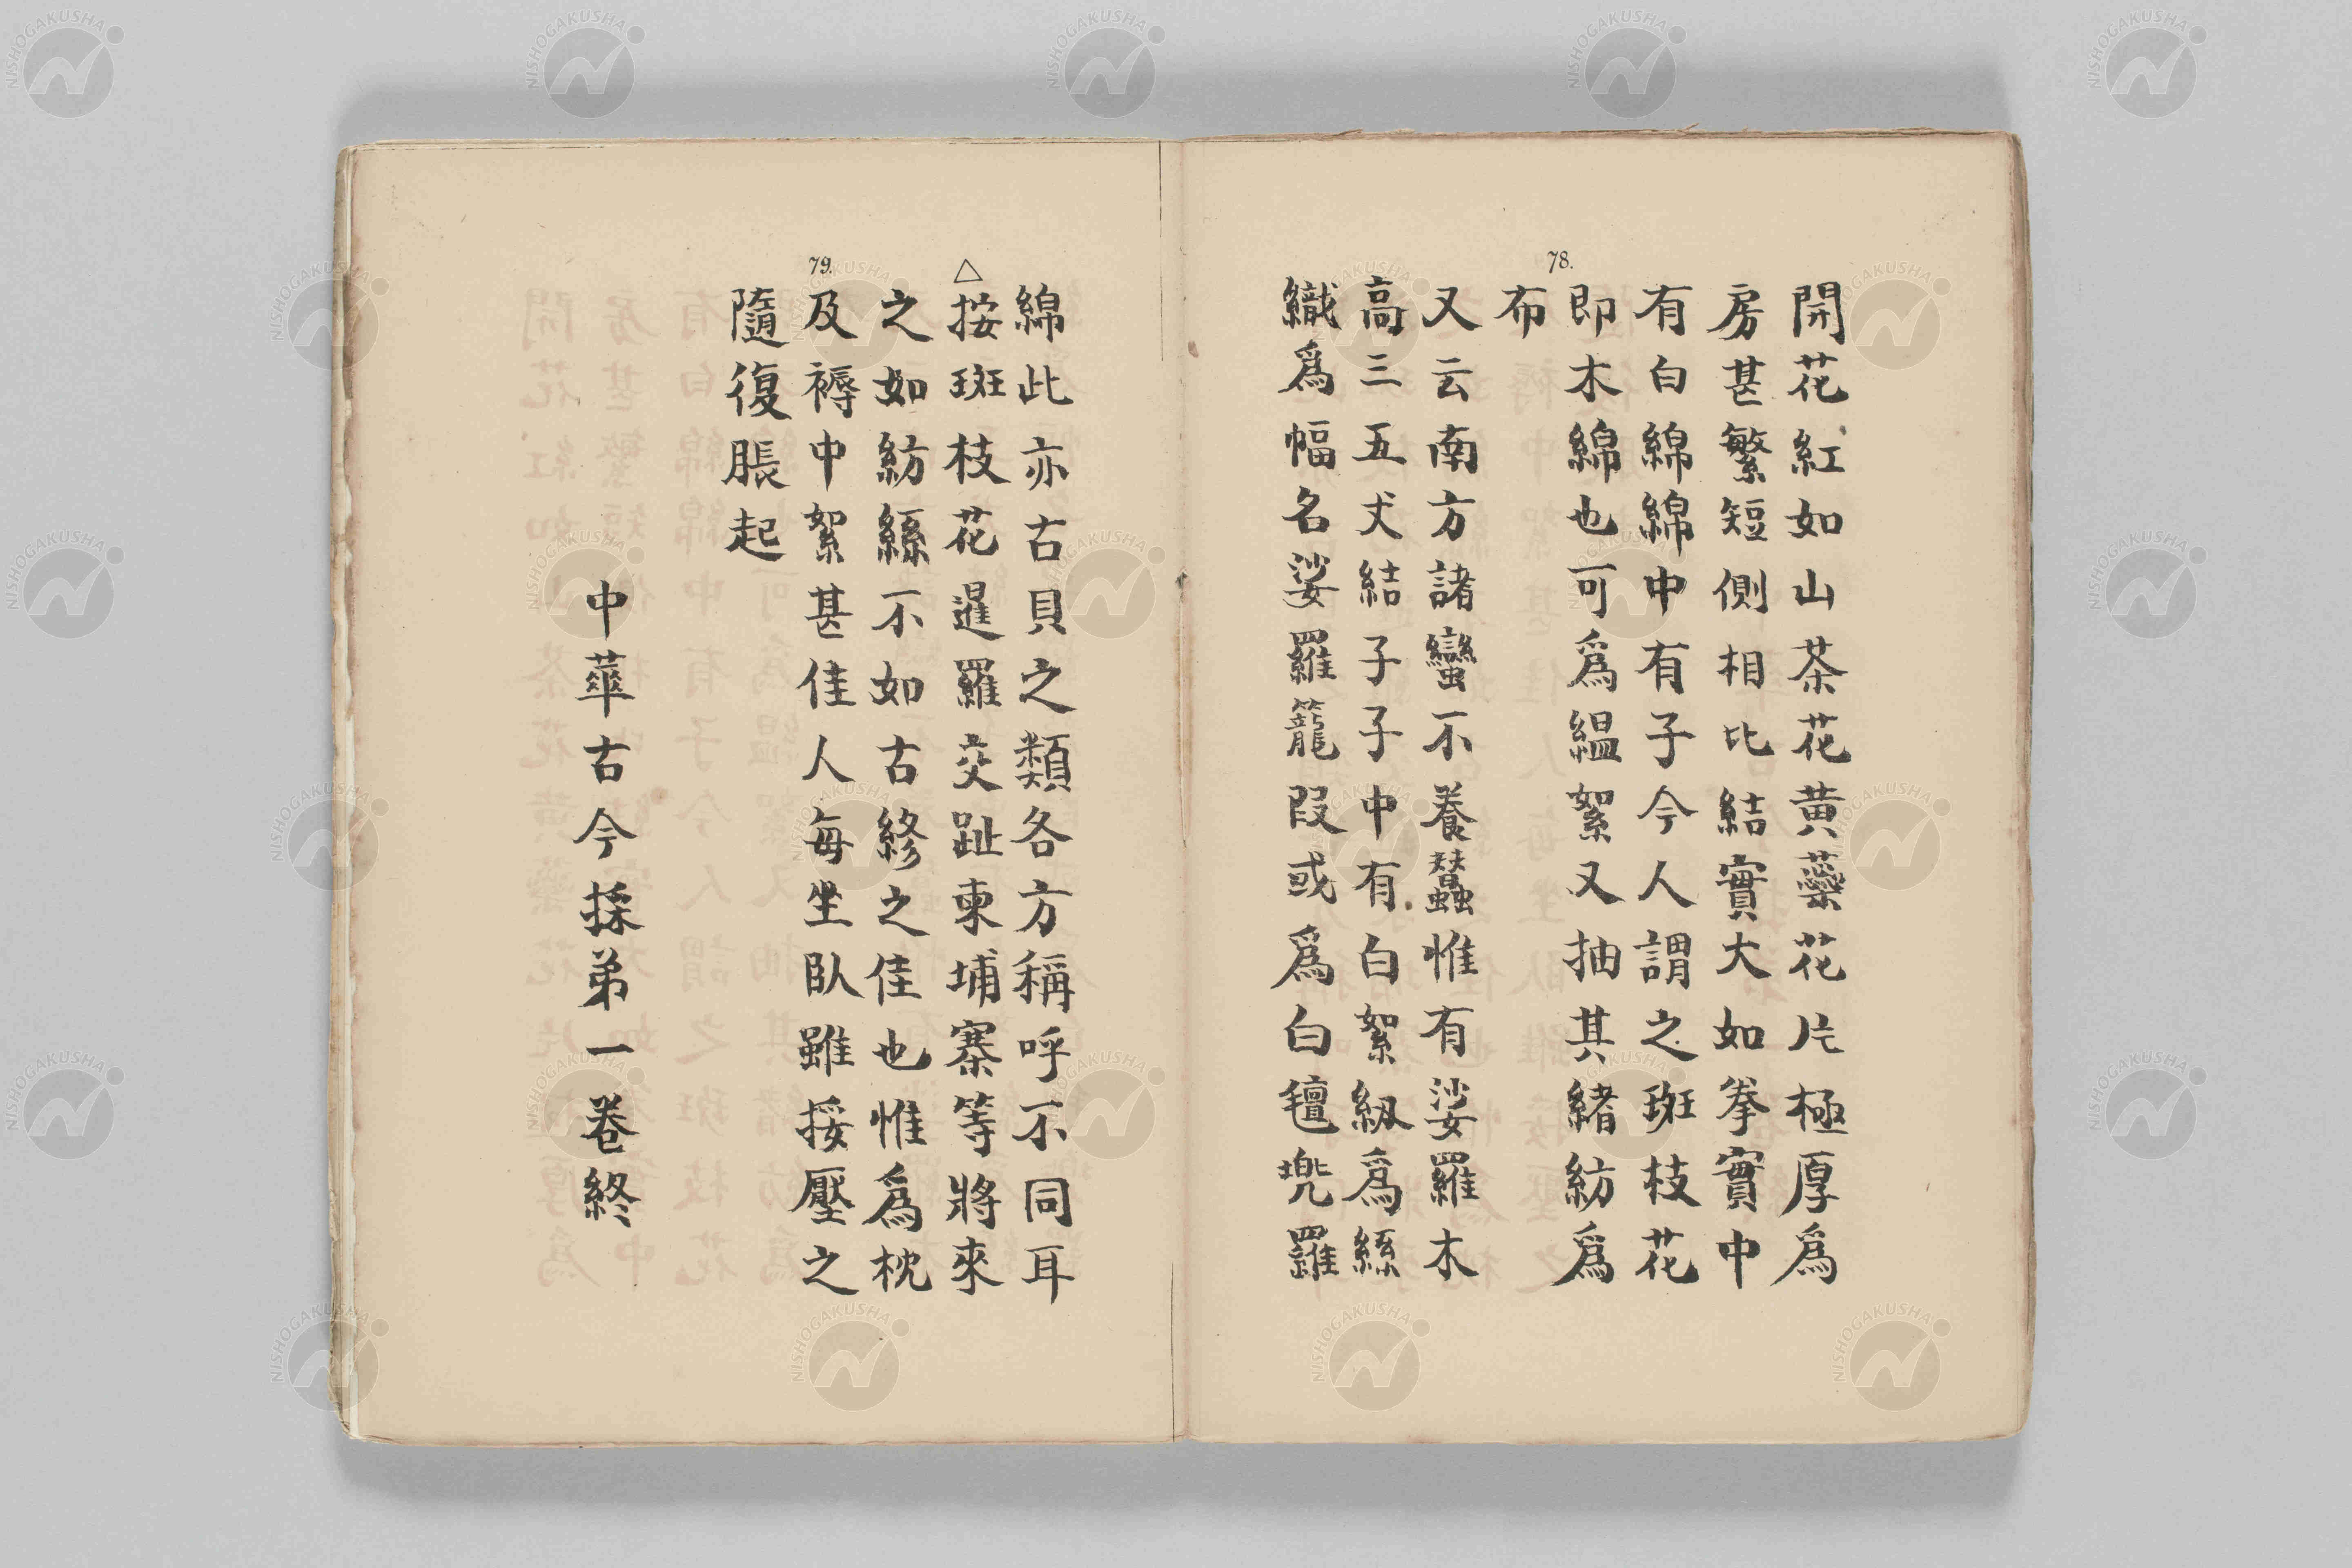 78.
開花紅如山茶花黄蘂花片極厚爲
房甚繁短側相比結實大如拳實中
有白綿綿中有子今人謂之斑枝花
即木綿也可爲縕絮又抽其緒紡爲
布
又云南方諸蠻不養蠶惟有娑羅木
高三五丈結子子中有白絮紉爲絲
織爲幅名娑羅籠段或爲白氎兜羅
79.
綿此亦古貝之類各方稱呼不同耳
△按斑枝花暹羅交趾柬埔寨等將來
之如紡絲不如古終之佳也惟爲枕
及褥中絮甚佳人每坐臥雖挼壓之
隨復脹起
中華古今採苐一卷終
NISHOGAKUSHA